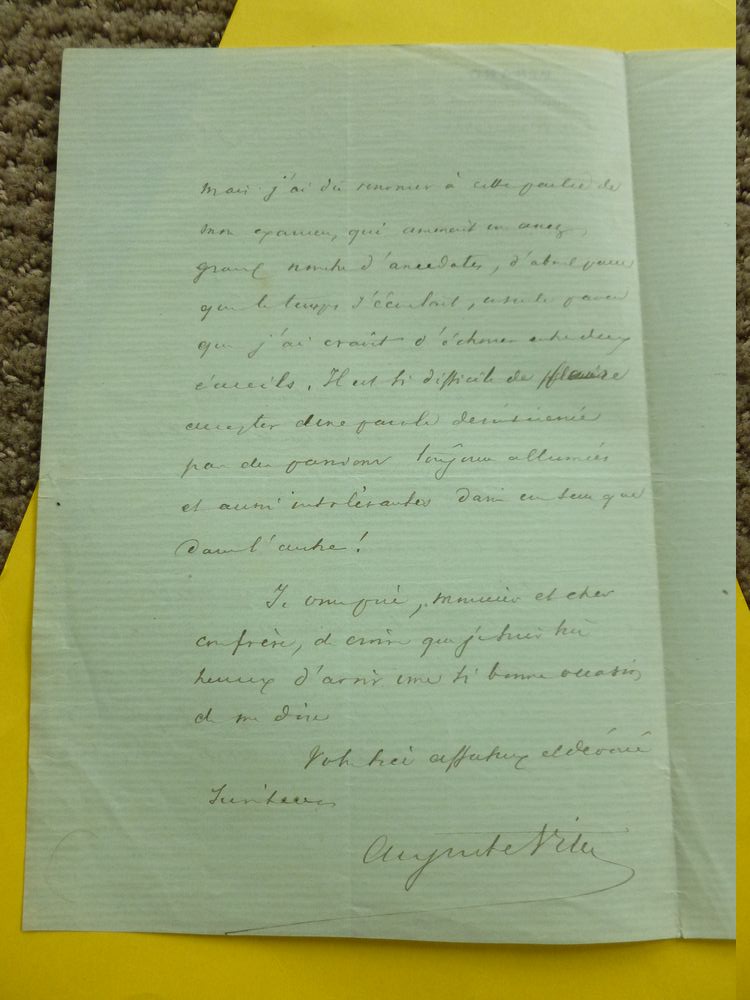 mais j'ai dû renoncer à cette partie de
mon examen, qui ammenait un assez
grand nombre d'anecdotes, d'abord parce
que le temps s'écoulait, ensuite parce
que j'ai craint d'échouer entre deux
écueils. Il est si difficile de faire
accepter une parole désintéressée
par des passions toujours allumées
et aussi intolérantes dans un sens que
dans l'autre!
Je vous prie, monsieur et cher
confrère, de croire que je suis très
heureux d'avoir une si bonne occasion
de me dire
Votre très affectueux et dévoué
Serviteur
Auguste Vitu